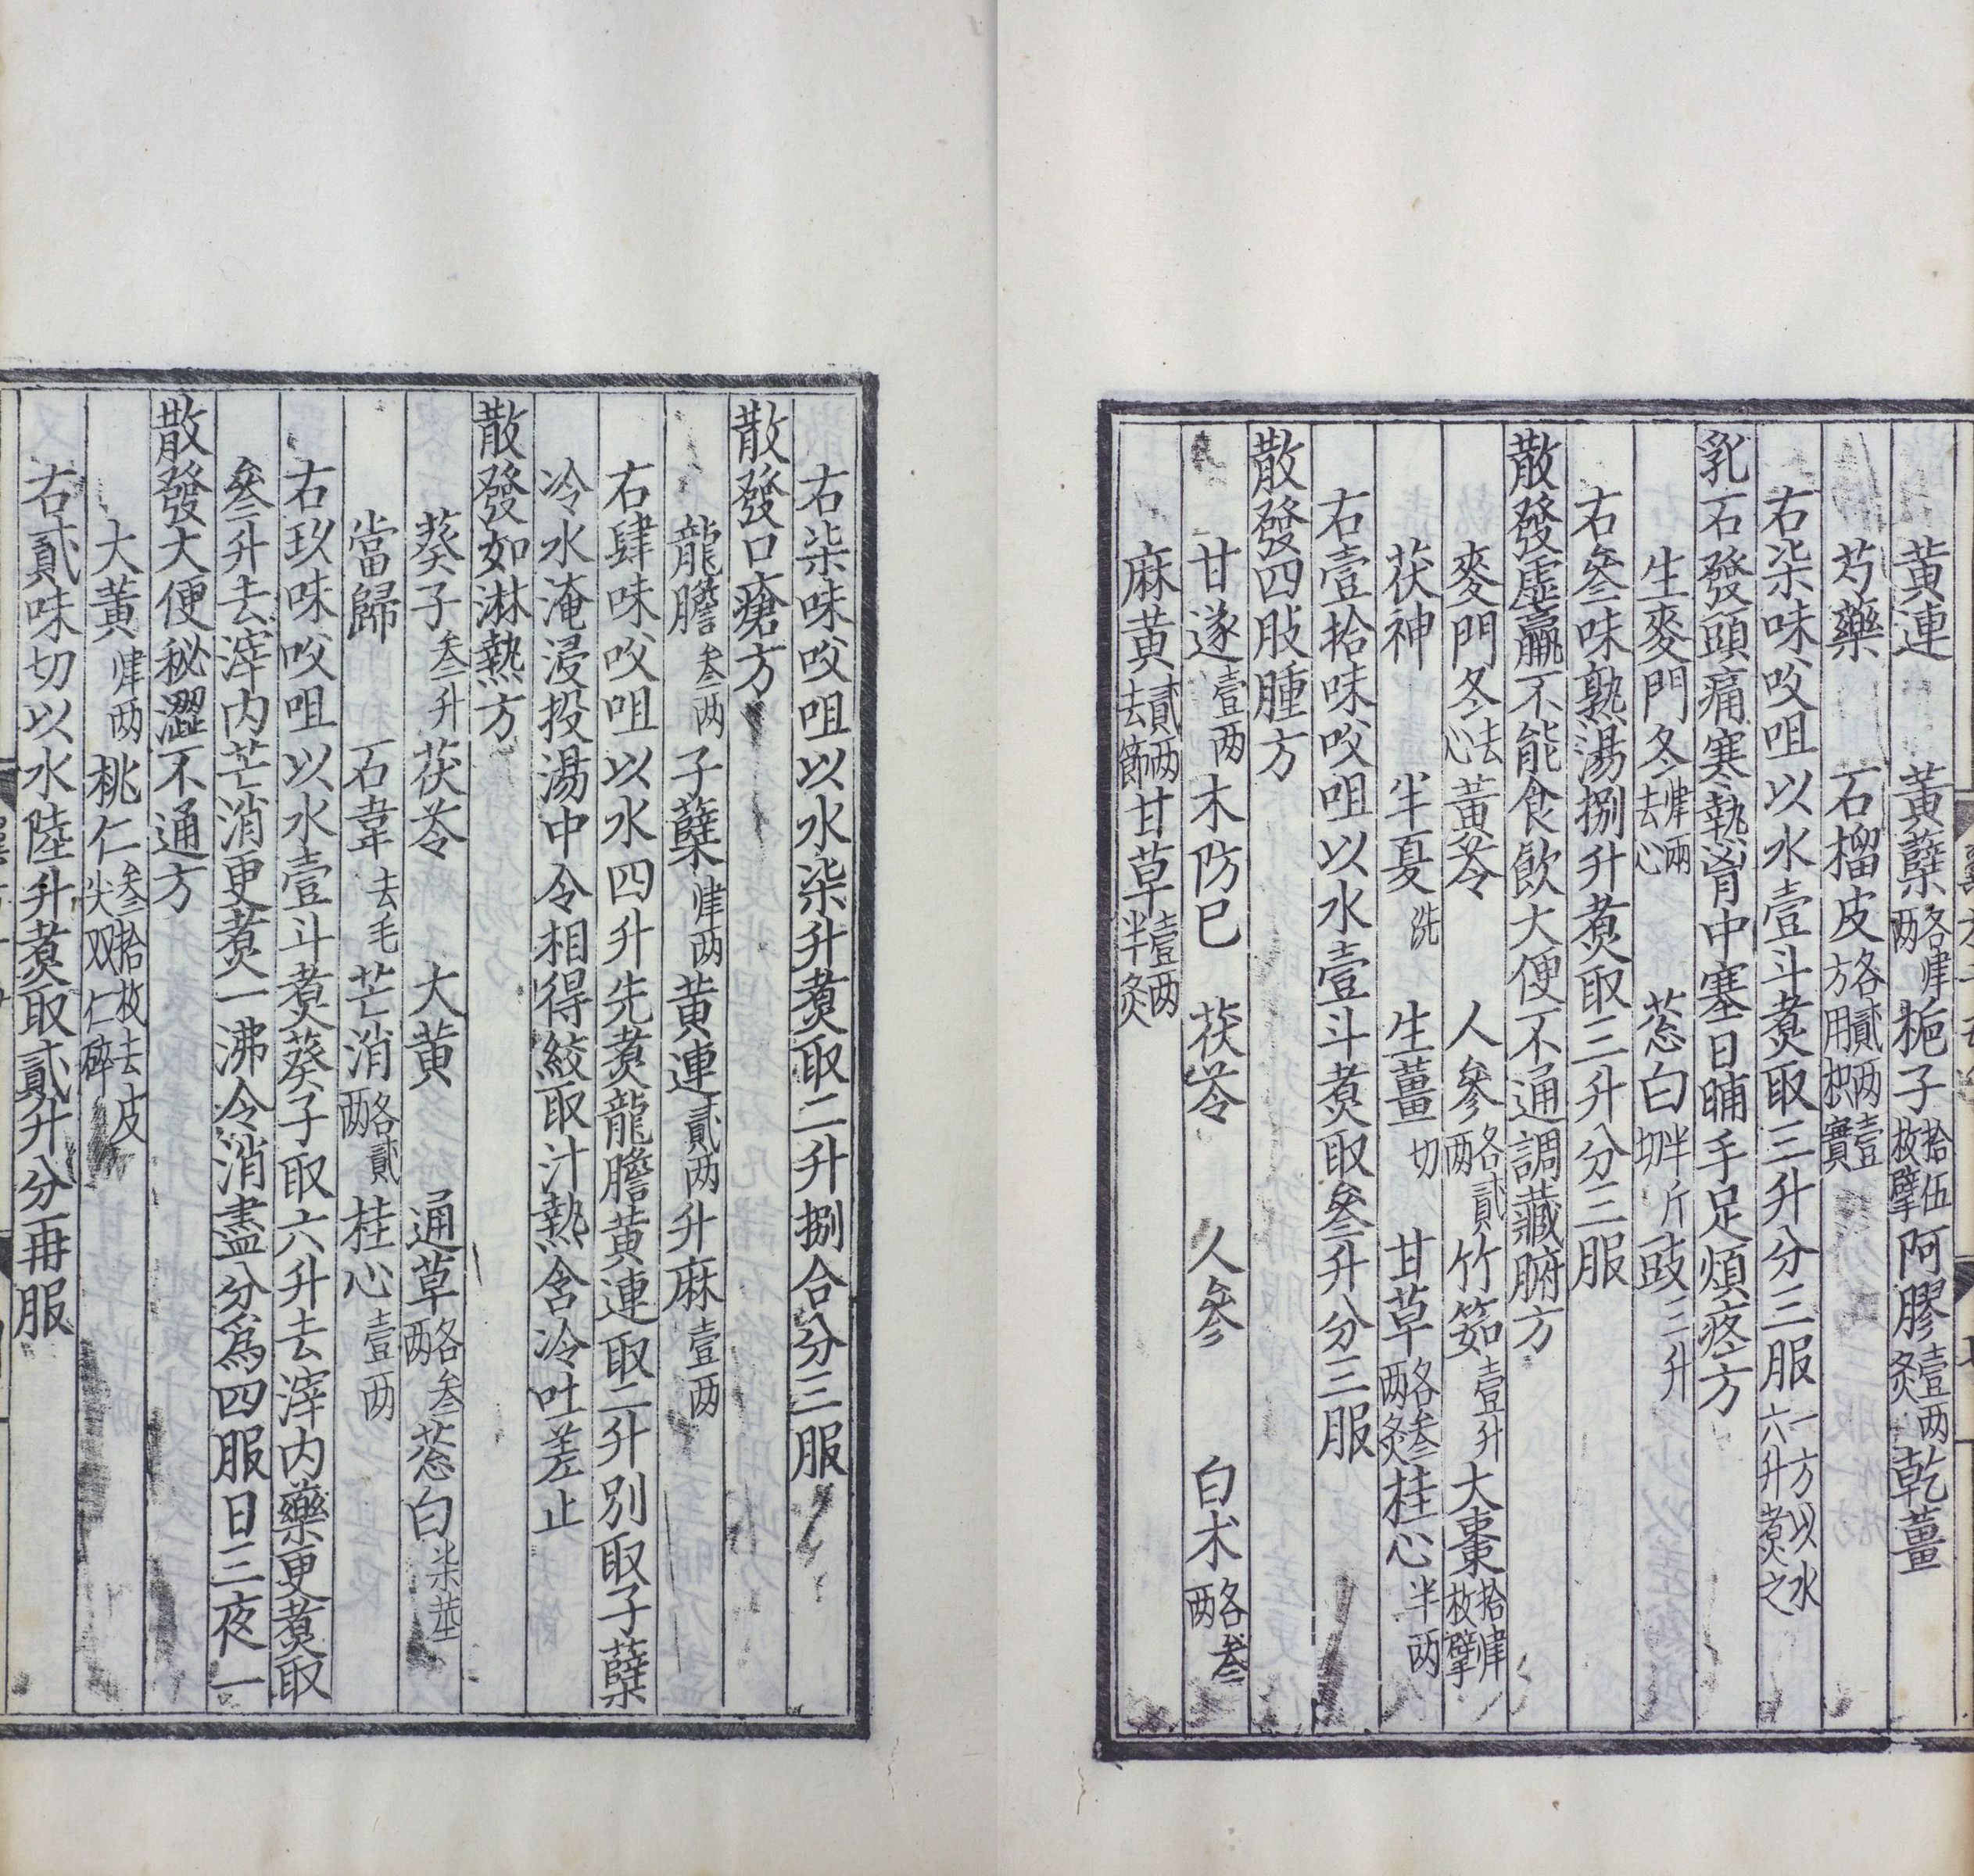 黄連　黄蘗各肆两梔子拾伍枚擘阿膠壹两炙乾薑
芍藥　石榴皮各貳两壹方用枳實
右柒味㕮咀以水壹斗煑取三升分三服一方以水六升煑之
乳石發頭痛寒熱胷中塞日晡手足煩疼方
生麥門冬肆兩去心　葱白半斤切豉三升
右叄味熟湯捌升煑取三升分三服
散發虛羸不能食飲大便不通調藏腑方
麥門冬去心黄芩　人參各貳两竹筎壹升大棗拾肆枚擘
茯神　半夏洗　生薑切　甘草各叄两炙桂心半两
右壹拾味㕮咀以水壹斗煑取叄升分三服
散發四肢腫方
甘遂壹两木防巳　茯苓　人參　白术各叄两
麻黄貳两去節甘草壹两半炙
右柒味㕮咀以水柒升煑取二升捌合分三服
散發口瘡方
龍膽叄两子蘗肆两黄連貳两升麻壹两
右肆味㕮咀以水四升先煑龍膽黄連取二升別取子蘗
冷水淹浸投湯中令相得絞取汁熱含冷吐差止
散發如淋熱方
葵子叄升茯苓　大黄　通草各叄两葱白柒莖
當歸　石韋去毛芒消各貳两桂心壹两
右玖味㕮咀以水壹斗煑葵子取六升去滓内藥更煑取
叄升去滓内芒消更煑一沸令消盡分爲四服日三夜一
散發大便秘澀不通方
大黄肆两桃仁叄拾枚去皮尖双仁碎
右貳味切以水陸升煑取貳升分再服